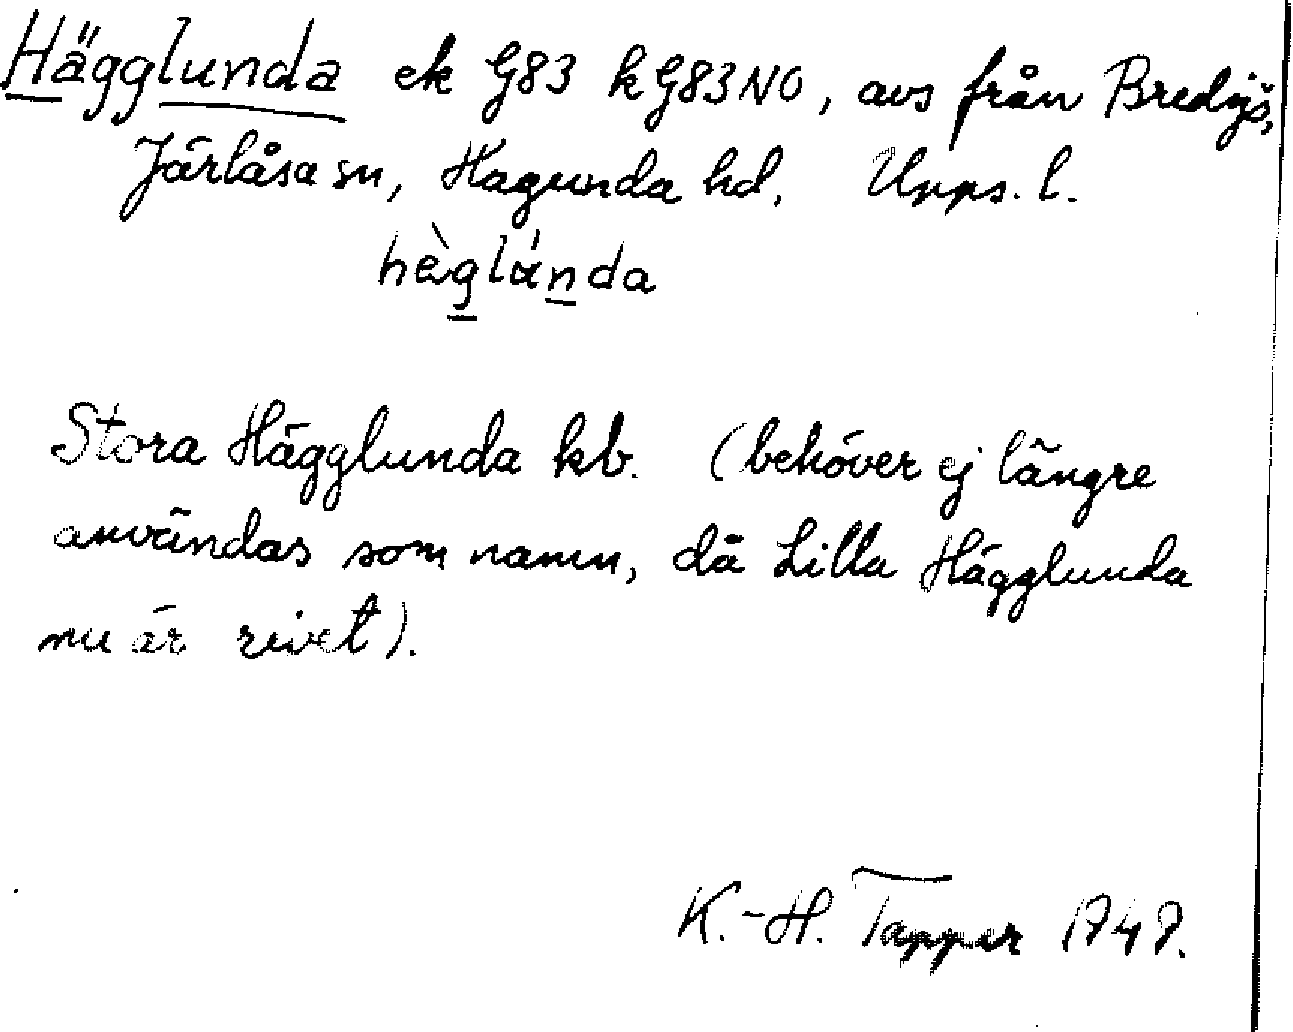 Hägglunda ek G83 k G83NO, avs från Bredsjö,
Järlåsa sn, Hagunda hd. Upps. l.
hègláṉda
Stora Hägglunda kb. (behöver ej längre
användas som namn, då Lilla Hägglunda
nu är rivet).
K.-H. Tapper 1949.